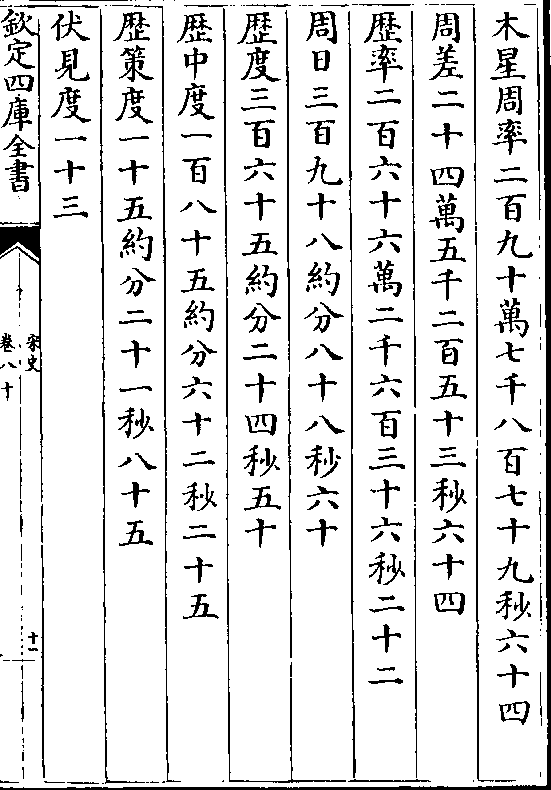 木星周率二百九十萬七千八百七十九秒六十四
周差二十四萬五千二百五十三秒六十四
歴率二百六十六萬二千六百三十六秒二十二
周日三百九十八約分八十八秒六十
歴度三百六十五約分二十四秒五十
歴中度一百八十五約分六十二秒二十五
歴策度一十五約分二十一秒八十五
伏見度一十三
欽定四庫全書
宋史
卷八十
十一